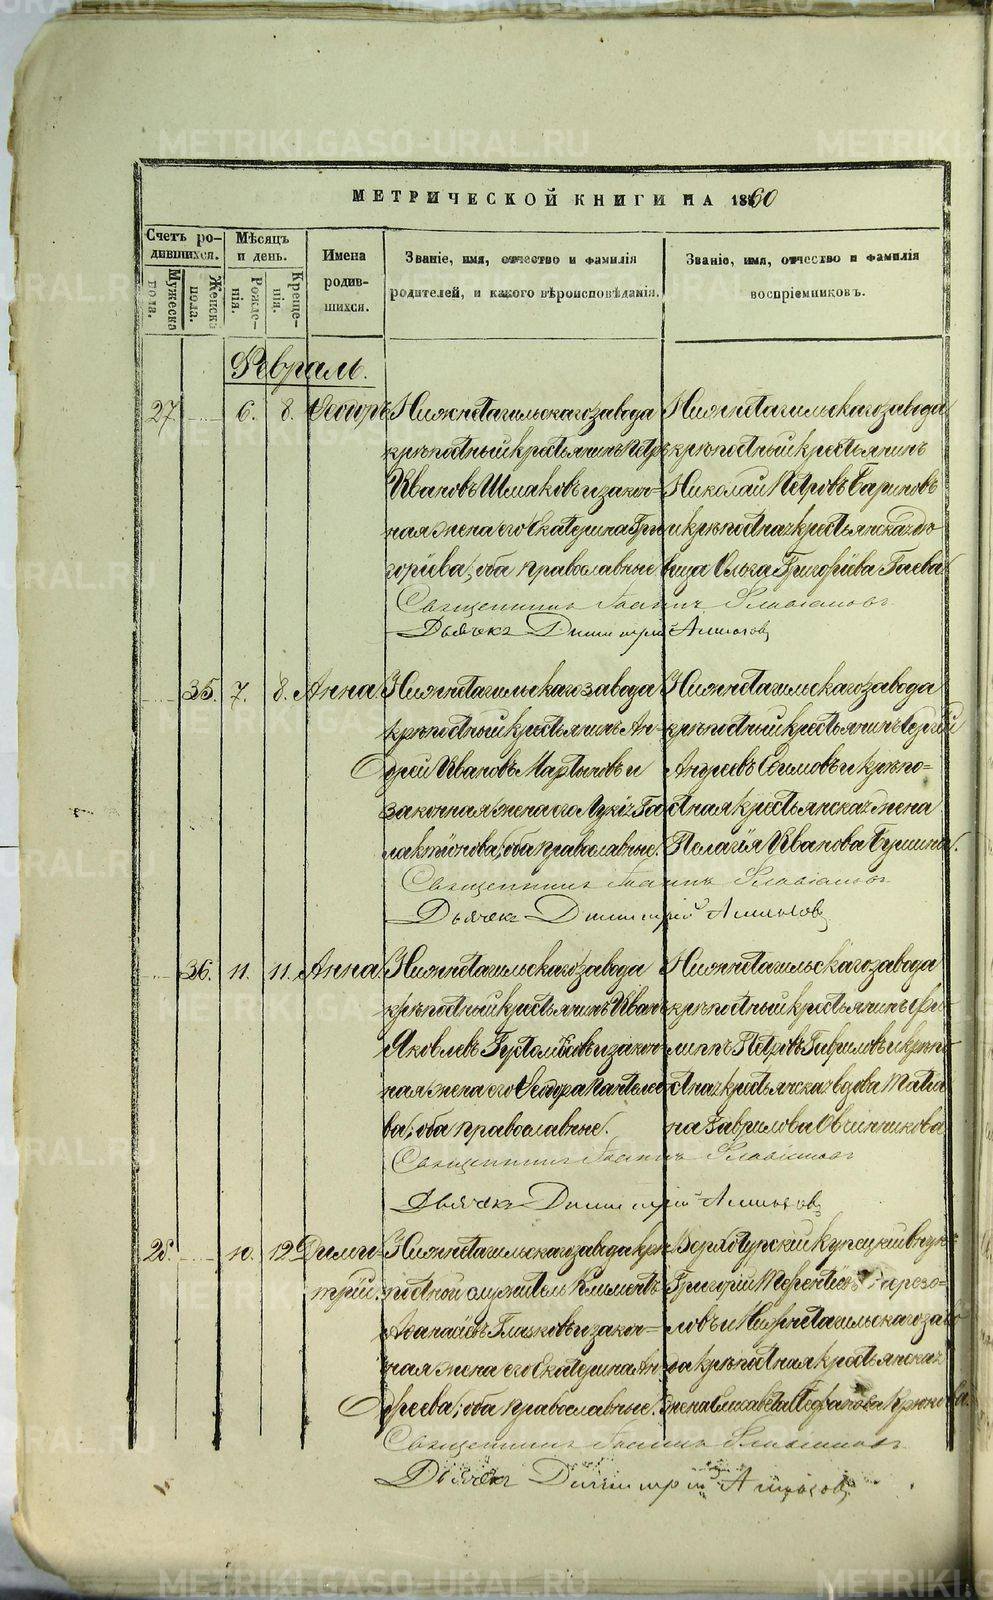 МЕТРИЧЕСКОЙ КНИГИ НА 1860
Счетъ родившихся.
Мѣсяцъ и день.
Имена родившихся.
Званіе, имя, отчество и фамилія родителей, и какого вѣроисповѣданія.
Званіе, имя, отчество и фамилія воспріемниковъ.
Мужеска пола.
Женска пола.
Рожденія.
Крещенія.
Февраль.
27. 6. 8. Ѳеодоръ
Нижнетагильскаго завода
крѣпостный крестьянинъ Петръ
Ивановъ Шмаковъ и закон-
ная жена его Екатерина Гри
горіева, оба православные
Нижнетагильскаго завода
крѣпостный крестьянинъ
Николай Петровъ Бариновъ
и крѣпостная крестьянская дѣ
вица Ольга Григоріева Гаева.
Священникъ Іоаннъ Славнинъ
Дьячекъ Димитрій
35. 7. 8. Анна
Нижнетагильскаго завода
крѣпостный крестьянинъ Ан-
дрей Ивановъ Мартыновъ и
законная жена его Лукія Га
лактіонова, оба православные.
Нижнетагильскаго завода
крѣпостный крестьянинъ Сергій
Андреевъ и крѣпо-
стная крестьянская жена
Пелагія Иванова
Священникъ Іоаннъ
Дьячекъ Димитрій
36. 11. 11. Анна.
Нижнетагильскаго завода
крѣпостный крестьянинъ Иванъ
Яковлевъ и закон
ная жена его Ѳеодора Пантелее
ва, оба православные.
Нижнетагильскаго завода
крѣпостный крестьянинъ Фи-
липпъ Петровъ Гавриловъ и крѣпо
стная крестьянская вдова Татіа
на Гаврилова Овчинникова
Священникъ Іоаннъ
Дьячекъ Димитрій
28. 10. 12. Дими-
трій.
Нижнетагильскаго завода крѣ
постной служитель Климентъ
Аѳанасіевъ Глазковъ и закон-
ная жена его Екатерина Ан-
дреева, оба православные.
Верхотурскій купеческій внукъ
Григорій Терентіевъ
ловъ и Нижнетагильскаго заво
да крѣпостная крестьянская
жена Елисавета Стефанова Крюкова.
Священникъ Іоаннъ
Дьячекъ Димитрій
METRIKI.GASO-URAL.RU